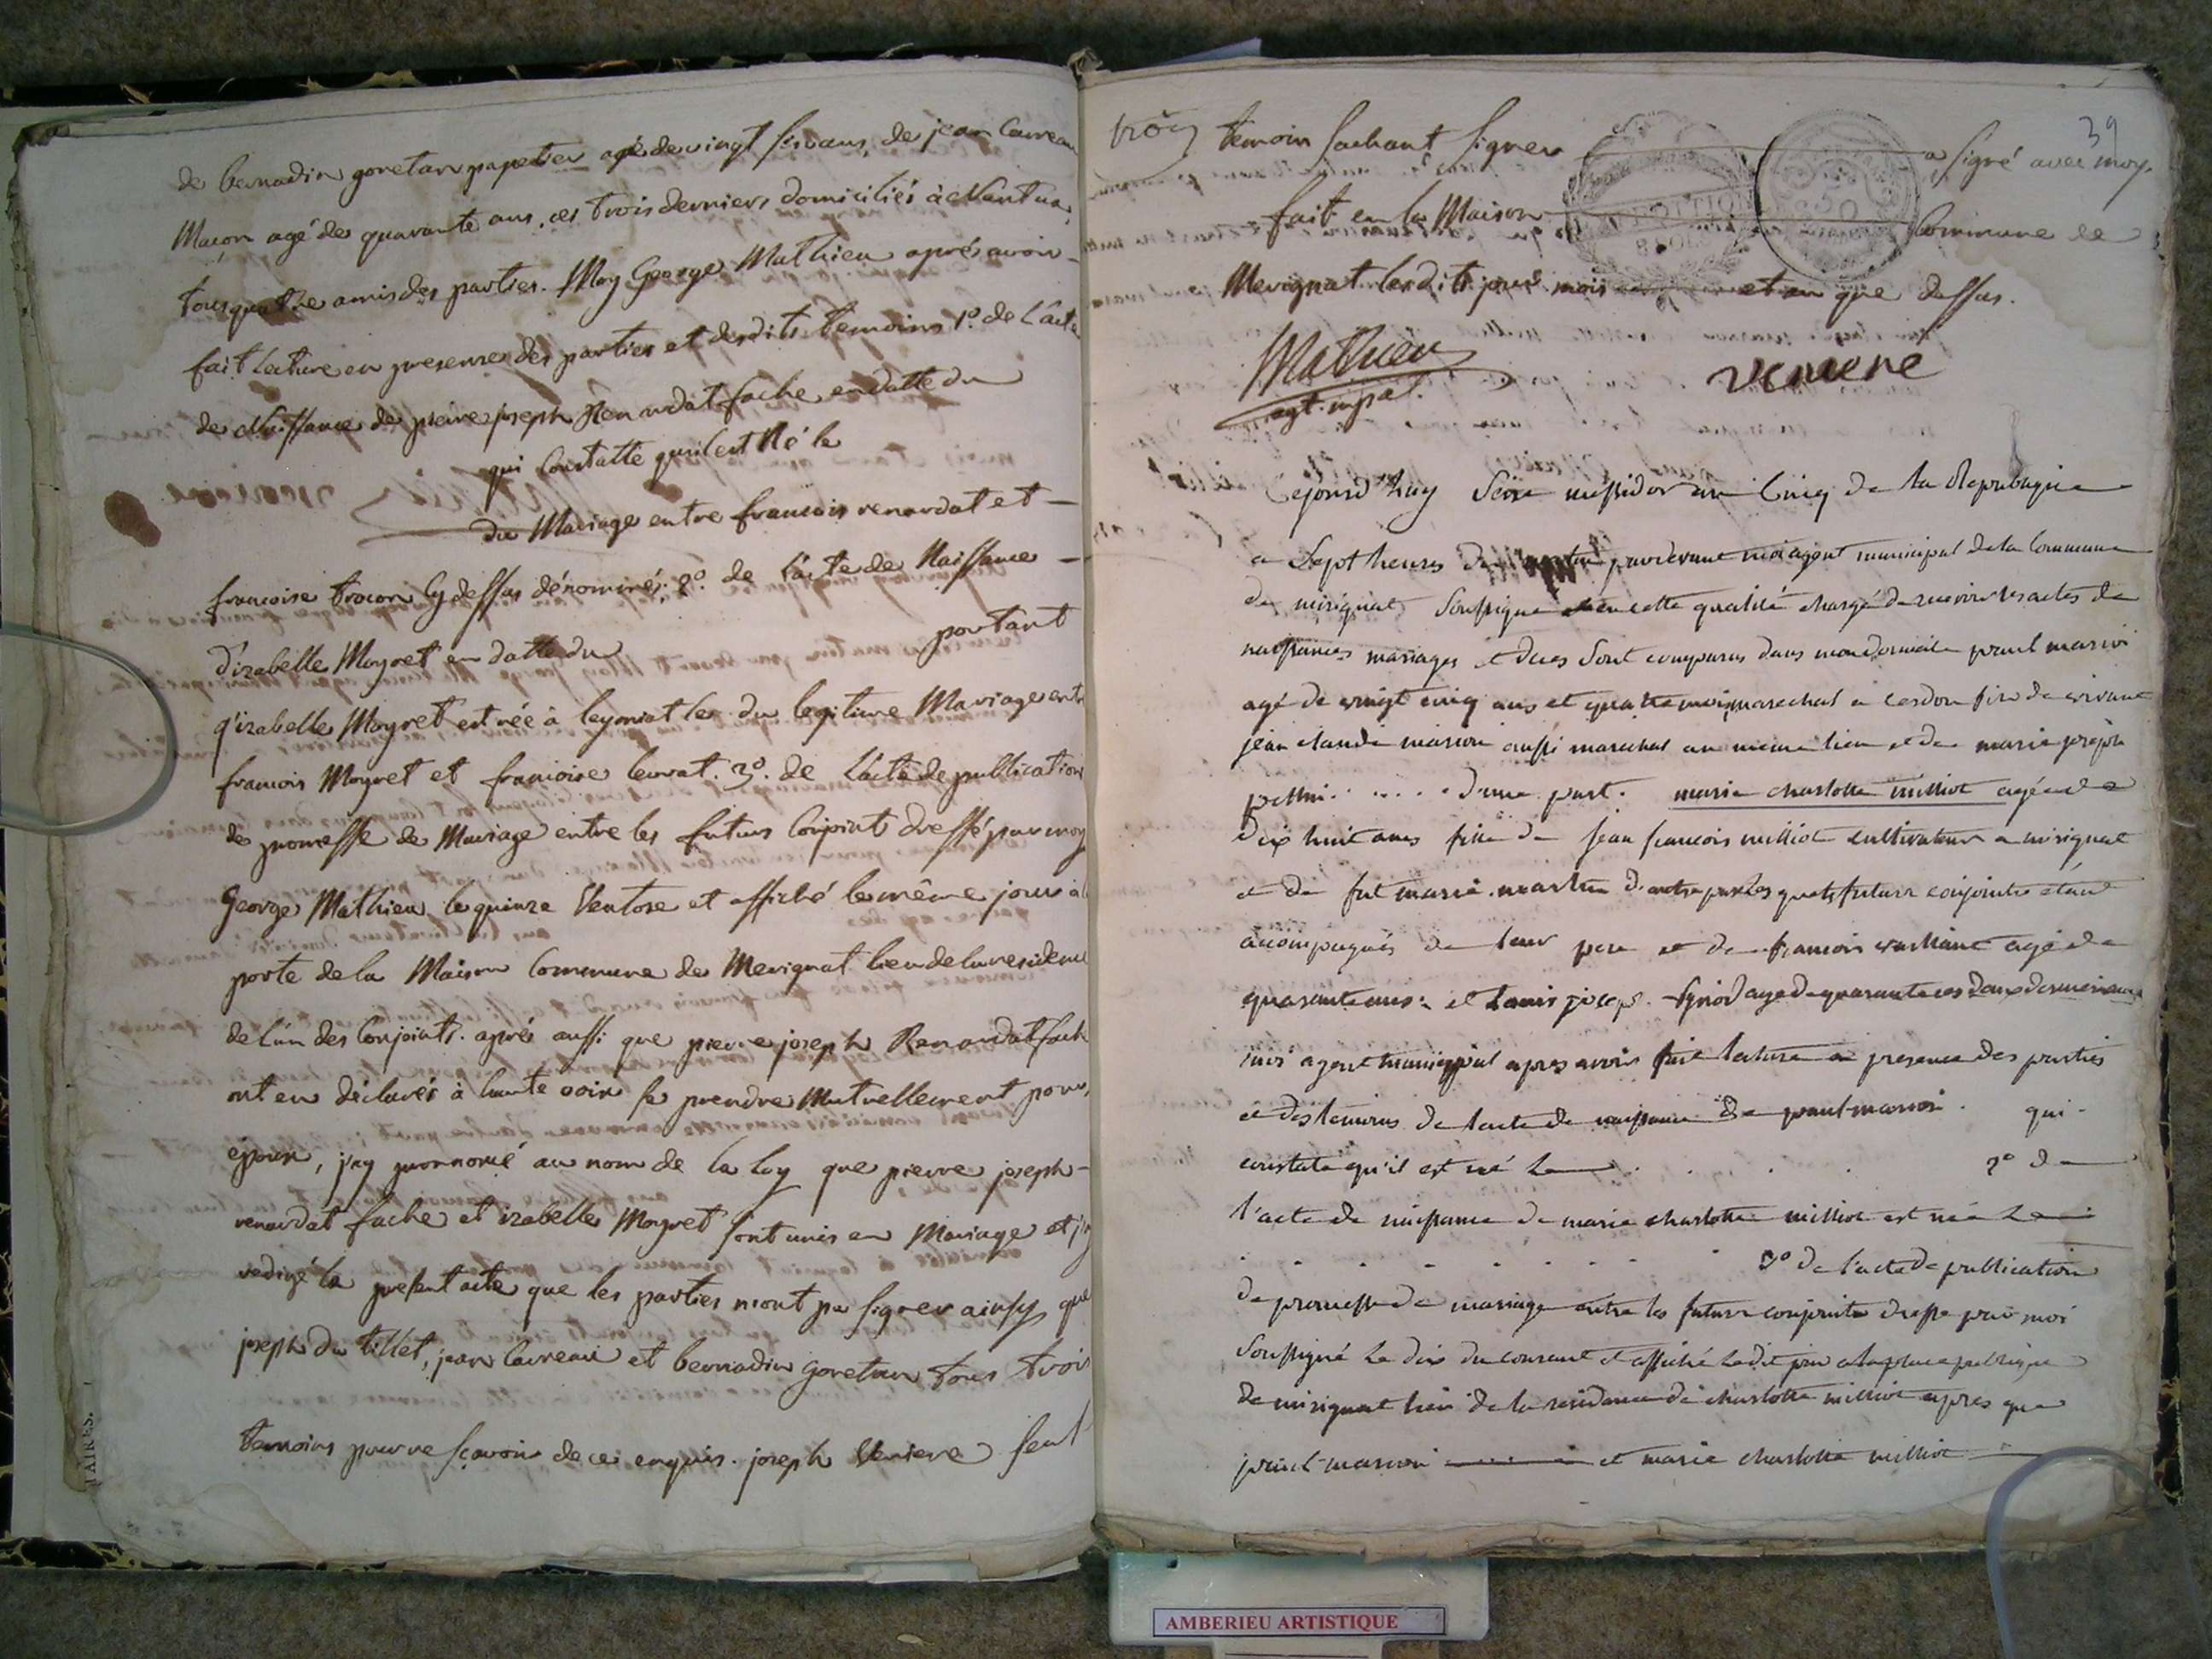 de bernadin goretan papetier agé de vingt six ans, de jean Carreau
Macon agé de quarante ans, ces trois derniers domiciliés à Nantua,
tous quatre amis des parties. Moy George Mathieu après avoir
fait lecture en presence des parties et desdits temoins 1º. de L'acte
de Naissance de pierre joseph Renardat fache en datte du
qui Constatte qu'il est Né le
du Mariage entre francois renardat et
francoise tracon Cy dessus dénommés; 2º. de L'acte de Naissance
d'izabelle Moyret en datte du portant
q'izabelle Moyret est née à leyniat le du legitime Mariage entre
francois Moyret et francoise levrat. 3º. de L'acte de publication
de promesse de Mariage entre les futurs Conjoint dressé par moy
George Mathieu le quinze Ventose et affiché le même jour à la
porte de la Maison Commune de Merignat lieu de la residence
de l'un des Conjoints. après aussi que pierre joseph Renardat fache
ont eu déclarés à haute voix se prendre Mutuellement pour
epoux, j'ay prononcé au nom de la loy que pierre joseph
renardat fache et izabelle Moyret sont unis en Mariage et j'ay
redigé le present acte que les parties n'ont pu signer ainsy que
joseph du tillet, jean Carreau et bernadin goretan tous trois
temoins pour ne sçavoir de ce enquis. joseph Veniere seul
39
temoin sachant signer a signé avec moy.
fait en la Maison Commune de
Merignat lesdits jour mois et an que dessus.
Mathieu
agt. mpal.
veniere
Cejourd'huy Seize messidor an Cinq de la Republique
a Sept heures du pardevant moi agent municipal de la Commune
de mérignat Soussigné en cette qualité chargé de recevoir les actes de
naissances mariages et deces Sont comparus dans mon domicile paul marion
agé de vingt cinq ans et quatre mois, marechal a cerdon fils de vivant
jean claude marion aussi marechal au meme lieu et de marie joseph
d'une part. marie charlotte milliot agée de
dix huit ans fille de jean francois milliot cultivateur a mérignat
et de fut marie d'autre part Lesquels futurs conjoints étant
acompagnés de leur pere et de francois agé de
quarante ans: et Louis josep. agé de quarante ces deux derniers
moi agent municipal apres avoir fait lecture en presence des parties
et des temoins de lacte de naissance de paul marion. qui
constate qu'il est né Le 2º de
l'acte de naissance de marie charlotte milliot est née Le
3º de l'acte de publication
de promesse de mariage entre les futurs conjoints dressé par moi
Soussigné Le dix du courant et affiché Ledit jour a la place publique
de mérignat lieu de la résidence de charlotte milliot apres que
paul marion et marie charlotte milliot
AMBERIEU ARTISTIQUE